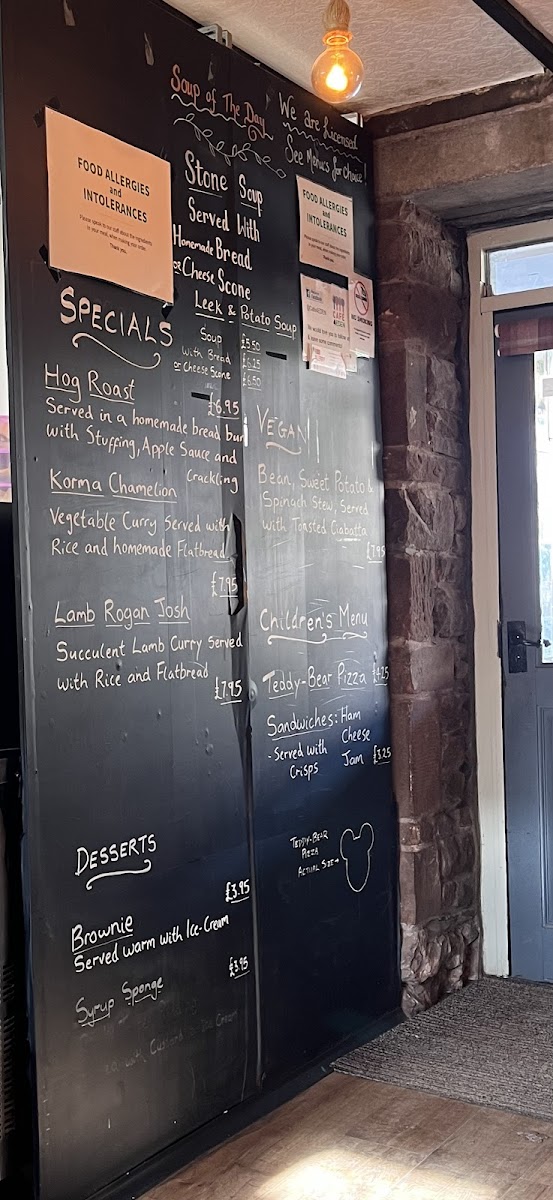 Soup of The Day
We are Licensed
See Menus for Choice!
FOOD ALLERGIES
and
INTOLERANCES
Please speak to our staff about the ingredients
in your meal, when making your order.
Thank you.
Stone Soup
Served With
Homemade Bread
or Cheese Scone
Leek & Potato Soup
Soup £5.50
with Bread £6.25
or Cheese Scone £6.50
FOOD ALLERGIES
and
INTOLERANCES
NO SMOKING
SPECIALS
Hog Roast £6.95
Served in a homemade bread bun
with Stuffing, Apple Sauce and
Crackling
Korma Chamelion
Vegetable Curry Served with
Rice and homemade Flatbread
£7.95
Lamb Rogan Josh
Succulent Lamb Curry Served
with Rice and Flatbread
£7.95
VEGAN
Bean, Sweet Potato &
Spinach Stew, Served
with Toasted Ciabatta
£7.95
Children's Menu
Teddy-Bear Pizza £4.25
Sandwiches: Ham
- Served with Cheese
Crisps Jam £3.25
TEDDY-BEAR
PIZZA
ACTUAL SIZE
DESSERTS
£3.95
Brownie
Served warm with Ice-Cream
£3.95
Syrup Sponge
with Custard or Ice Cream